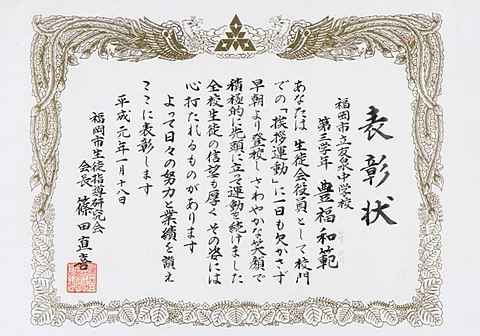 表彰状
福岡市立友泉中学校
第三学年 豊福和範
あなたは 生徒会役員として校門
での「挨拶運動」に一日も欠かさず
早朝より登校しさわやかな笑顔で
積極的に先頭に立ち運動を続けました
全校生徒の信望も厚く その姿には
心打たれるものがあります
よって日々の努力と業績を讃え
ここに表彰します
平成元年一月十八日
福岡市生徒指導研究会
会長 篠田直喜